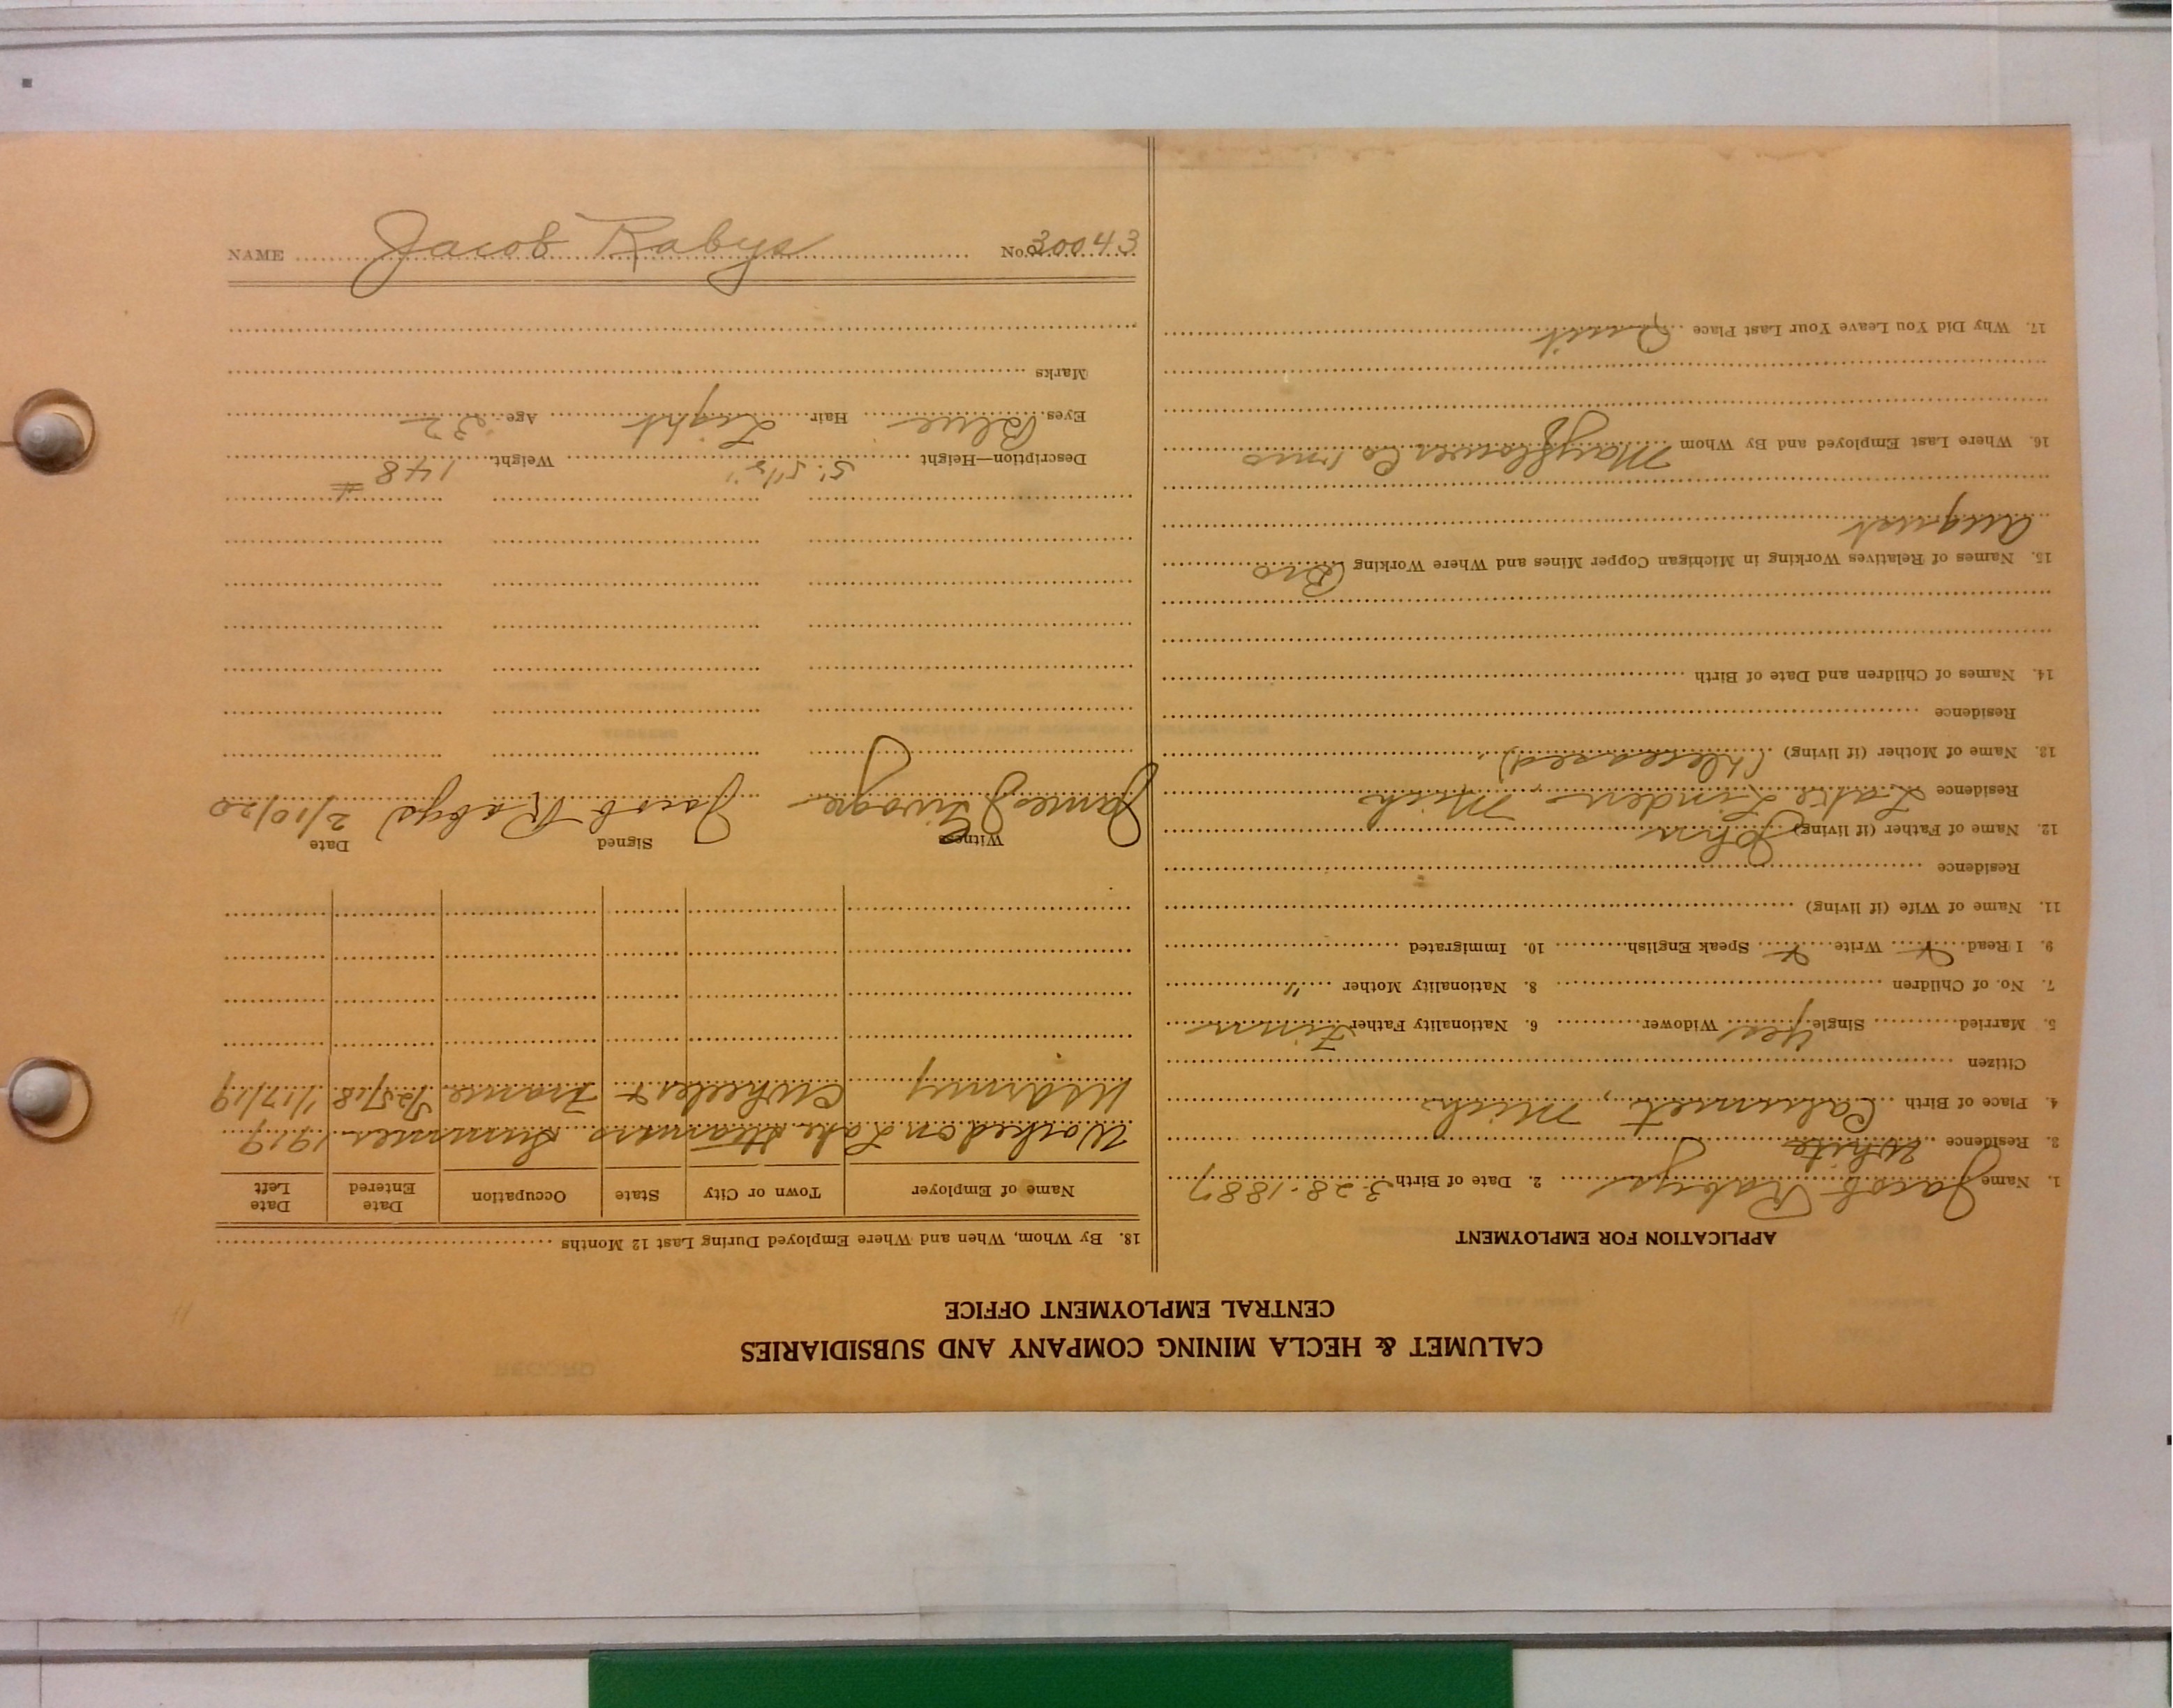 CALUMET & HECLA MINING COMPANY AND SUBSIDIARIES
CENTRAL EMPLOYMENT OFFICE
APPLICATION FOR EMPLOYMENT
1. Name Jacob Rabys 2. Date of Birth 3-28-1887
3. Residence White
4. Place of Birth Calumet, Mich
Citizen
5. Married Single yes Widower 6. Nationality Father Finn
7. No. of Children 8. Nationality Mother "
9. I Read x Write x Speak English 10. Immigrated
11. Name of Wife (if living)
Residence
12. Name of Father (if living) John
Residence Lake Linden, Mich
13. Name of Mother (if living) (deceased)
Residence
14. Names of Children and Date of Birth
15. Names of Relatives Working in Michigan Copper Mines and Where Working Bro
August
16. Where Last Employed and By Whom Mayflower Co
17. Why Did You Leave Your Last Place Quit
18. By Whom, When and Where Employed During Last 12 Months
Name of Employer Town or City State Occupation Date Entered Date Left
Worked on Lake Steamers Summer 1919
US Army France 1/17/19
Witness Signed Date
James Jacob Rabys 2/10/20
Description—Height 5' 5 1/2" Weight 148 #
Eyes Blue Hair Light Age 32
Marks
NAME Jacob Rabys No. 30043